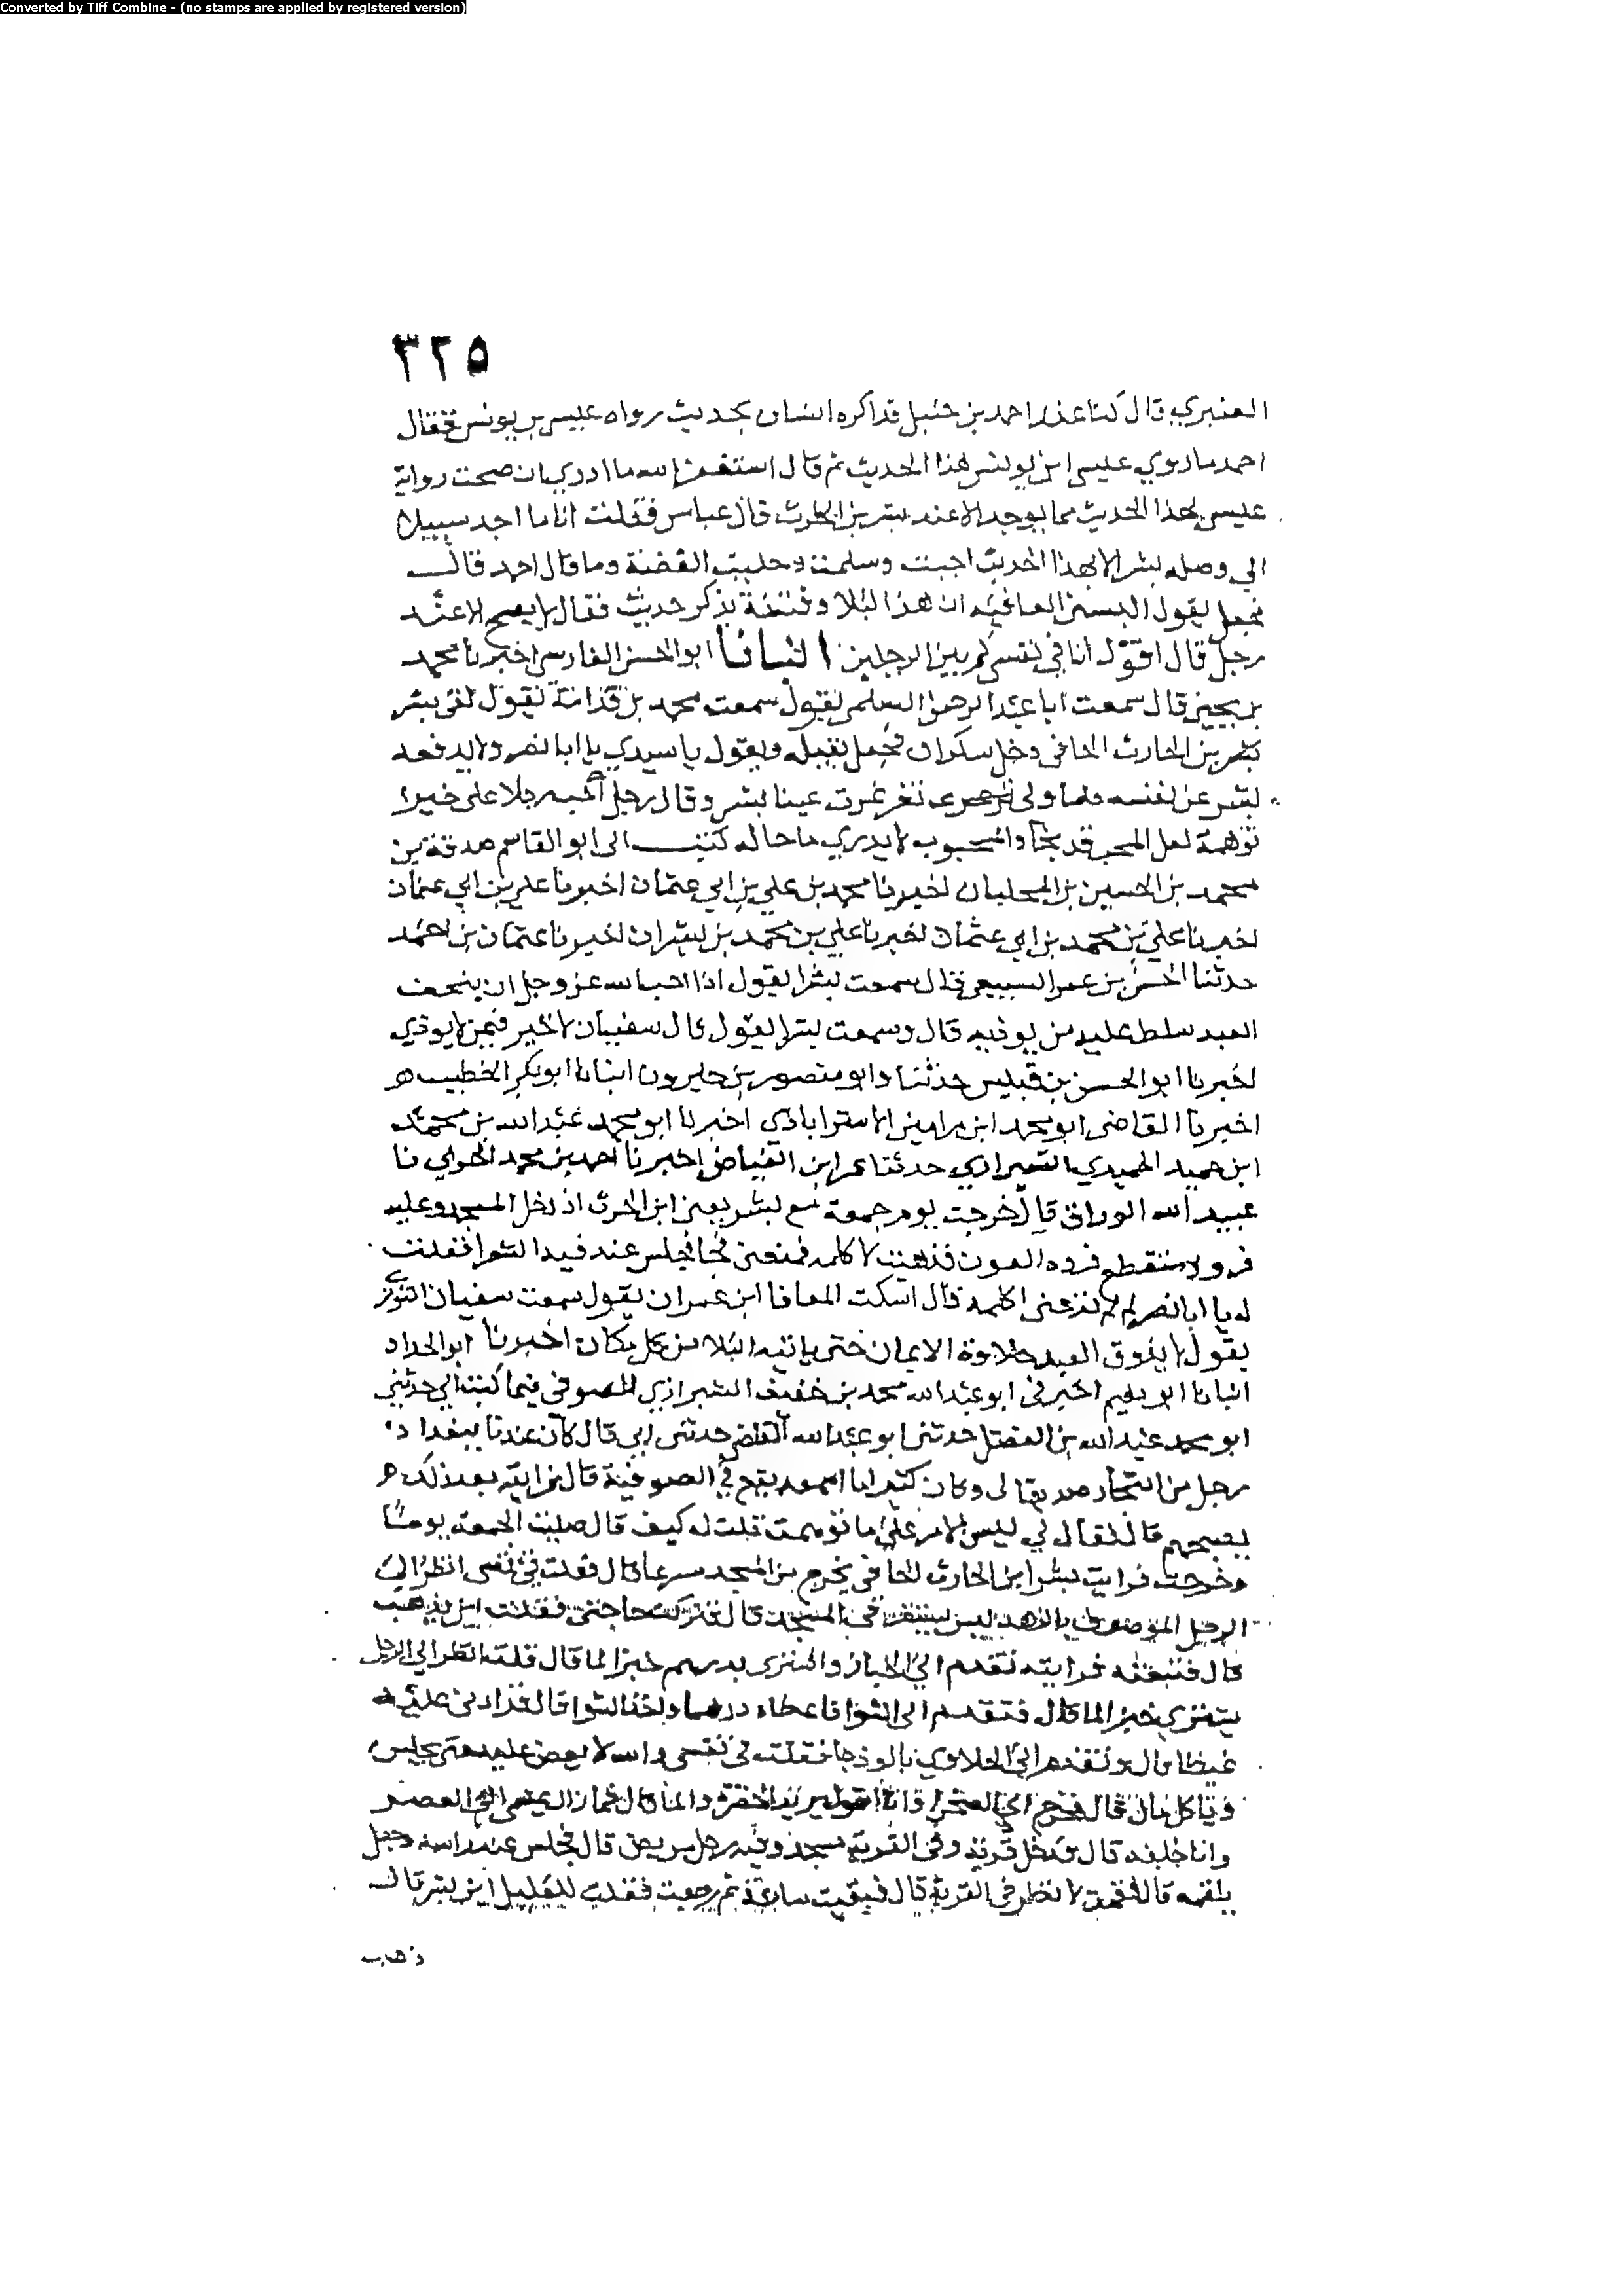 Converted by Tiff Combine - (no stamps are applied by registered version)
٣٢٥
العنبري قال كنا عند احمد بن حنبل فذاكره انسان بحديث رواه عيسى بن يونس فقال
احمد ما روي عيسى ابن يونس هذا الحديث ثم قال استغفر الله ما ادري ان صحت رواية
عيسى لهذا الحديث فما يوجد الا عند بشر بن الحرث قال عباس فقلت انا ما اجد سبيلا
الي وصله بشر الا بهذا الحديث اجبت وسلمت وحكيت القصة وما قال احمد قال
فجعل يقول اليس من العافيه ان هذا البلا وفتنة يذكر حديث فقال لا يصح الا عند
رجل قال اقول انا في نفسي كم بين الرجلين انبانا ابو الحسن الفارسي اخبرنا محمد
بن يحيى قال سمعت ابا عبد الرحمن السلمي يقول سمعت محمد بن قدامة يقول لقي بشر
بشر بن الحارث الحافي رجل سكران فجعل يقبله ويقول يا سيدي يا ابا نصر ولا يدفعه
بشر عن نفسه فلما ولى تغرغرت عينا بشر وقال رجل احب رجلا على خير
توهمه لعل المحب قد نجا والمحبوب لا يدري ما حاله كتب الى ابو القاسم صدقة بن
محمد بن الحسين بن المحلبان اخبرنا محمد بن علي بن ابي عثمان اخبرنا علي بن ابي عثمان
اخبرنا علي بن محمد بن ابي عثمان اخبرنا علي بن محمد بن بشران اخبرنا عثمان بن احمد
حدثنا الحسن بن عمر السبيعي قال سمعت بشرا يقول اذا احب الله عز وجل ان يتحف
العبد سلط عليه من يوذيه قال وسمعت بشرا يقول قال سفيان لا خير فيمن لا يوذي
اخبرنا ابو الحسن بن قبيس حدثنا وابو منصور بن خيرون انبانا ابو بكر الخطيب ه
اخبرنا القاضي ابو محمد ابن رامين الاسترابادي اخبرنا ابو محمد عبد الله بن محمد
ابن حميد الحميدي الشيرازي حدثنا عمر ابن الفياض اخبرنا احمد بن محمد نا
عبيد الله الوراق قال خرجت يوم جمعة مع بشر يعني ابن الحرث اذ دخل المسجد وعليه
فرو منقطع العون فذهبت لاكلمه فمنعني فجا فجلس عند فقلت
له يا ابا نصر لم لم تدعني اكلمه قال اسكت المعافا ابن عمران يقول سمعت سفيان الثوري
يقول لا يذوق العبد حلاوة الايمان حتى ياتيه البلا من كل مكان اخبرنا ابو الحداد
انبانا ابو نعيم اخبرني ابو عبد الله محمد بن خفيف الشيرازي الصوفي فيما كتب الي حدثني
ابو محمد عبد الله بن الفضل حدثني ابو عبد الله القاضي حدثني ابي قال كان عندنا ببغداد
رجل من التجار صديقا لي وكان كثيرا ما اسمعه يقع في الصوفية قال فرايته بعد ذلك ه
يصحبهم قال فقال لي ليس الامر على ما توهمت قلت له كيف قال صليت الجمعه يوما
وخرجت فرايت بشر ابن الحارث الحافي يخرج من المسجد مسرعا قال فقلت في نفسي انظر الى
الرجل الموصوف بالزهد ليس يستقر في المسجد قال فتركت حاجتي فقلت اين يذهب
قال فتبعته فرايته تقدم الى الخباز واشترى بدرهم خبز الما قال قلت انظر الى الرجل
يشتري خبز الما قال فتقدم الى الشوا فاعطاه درهما واخذ الشوا قال فزادني عليه
غيظا قال وتقدم الى الحلاوي فالوذجا فقلت في نفسي والله لا حتى يجلس
وياكل قال فخرج الى الصحرا وانا اقول يريد الخضرة والما قال فما زال يمشي الى العصر
وانا خلفه قال فدخل قرية وفي القرية مسجد وفيه رجل مريض قال فجلس عند راسه وجعل
يلقمه قال فقمت لانظر في القرية قال فبقيت ساعة ثم رجعت فقلت للعليل اين بشر قال
ذهب